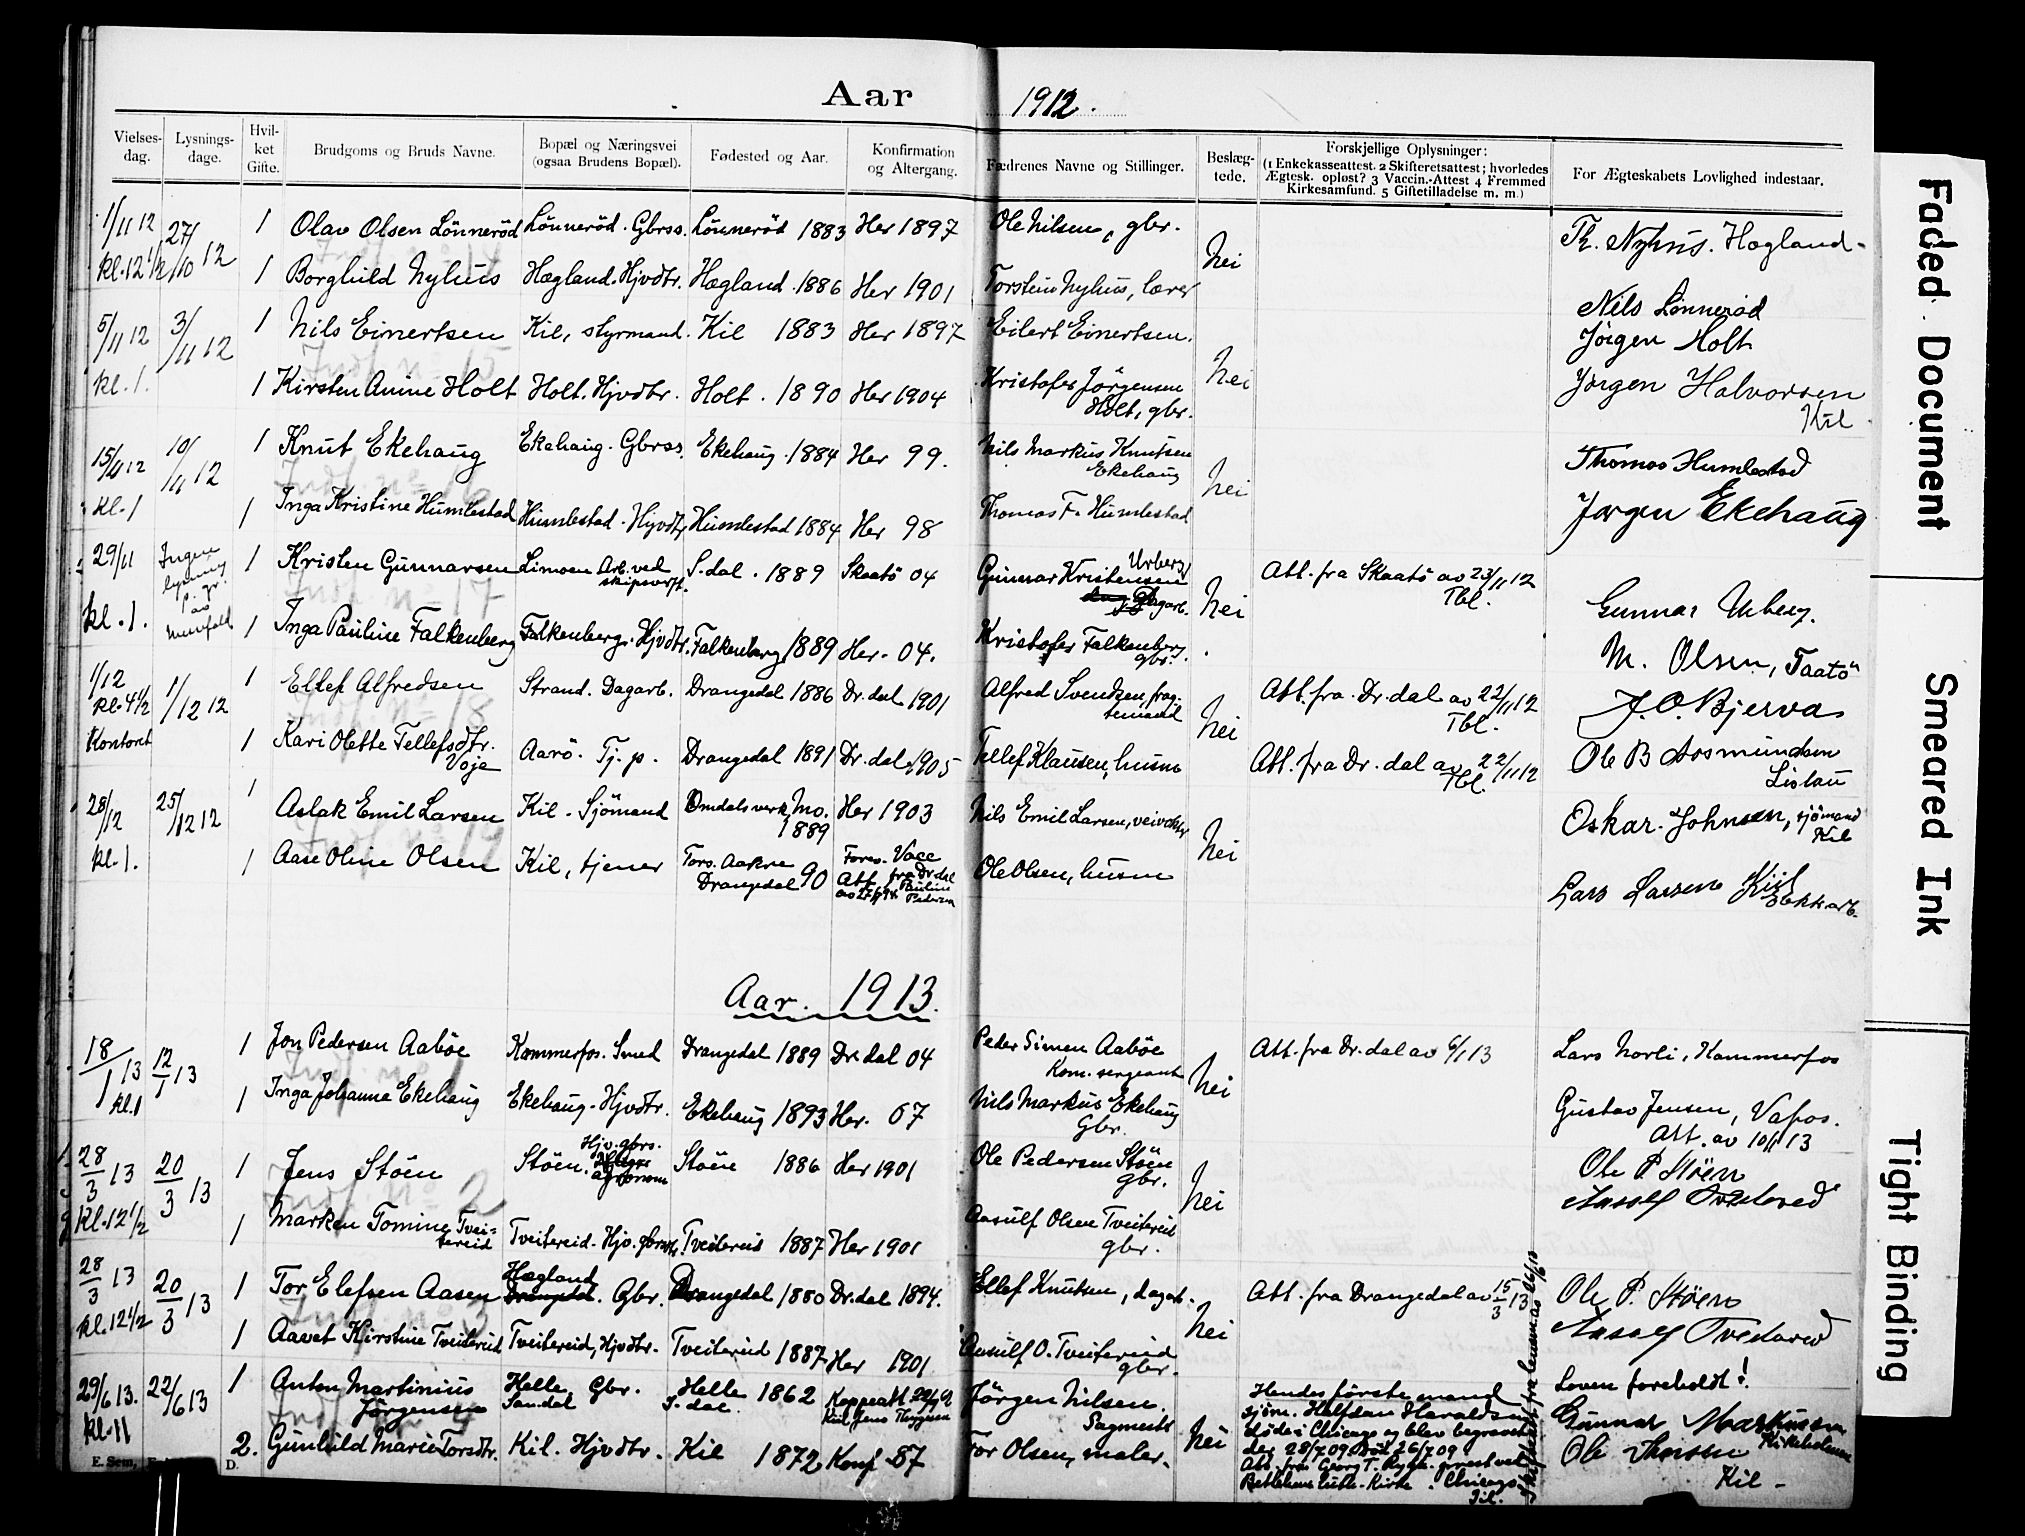 Aar 1912.
Vielses-dag. Lysnings-dage. Hvil-ket Gifte. Brudgoms og Bruds Navne. Bopæl og Næringsvei (ogsaa Brudens Bopæl). Fødested og Aar. Konfirmation og Altergang. Fædrenes Navne og Stillinger. Beslæg-tede. Forskjellige Oplysninger: (1 Enkekasseattest. 2 Skifteretsattest; hvorledes Ægtesk. opløst? 3 Vaccin.-Attest 4 Fremmed Kirkesamfund. 5 Giftetilladelse m. m.) For Ægteskabets Lovlighed indestaar.
1/11 12 27/10 12 1 Olav Olsen Lönneröd Lönneröd. Gbrss. Lönneröd 1883 Her 1897 Ole Nilsen, gbr. Nei Th. Nyhus. Hægland-
kl. 12 1/2 1 Borghild Nyhus Hægland. Hjvdtr. Hægland. 1886 Her 1901 Torstein Nyhus, lærer Nils Lönneröd
5/11 12 3/11 12 1 Nils Einertsen Kil, styrmand. Kil 1883 Her 1897 Eilert Einertsen. Nei Jörgen Holt
kl. 1. 1 Kirsten Anine Holt Holt. Hjvdtr. Holt. 1890 Her 1904 Kristofer Jörgensen Holt, gbr. Jörgen Halvorsen Kil
15/11 12 10/11 12 1 Knut Ekehaug Ekehaug. Gbrss. Ekehaug. 1884 Her 99. Nils Markus Knutsen Ekehaug Nei Thomas Humlestad
kl. 1 1 Inga Kristine Humlestad Humlestad. Hjvdtr. Humlestad 1884 Her 98 Thomas F. Humlestad Jørgen Ekehaug
29/11 Ingen lysning p. gr. av 1 Kristen Gunnarsen Limoen Arb. ved skipsverft. S.dal. 1889 Skaatö 04 Gunnar Kristensen Urberg Dagarb. Nei Att. fra Skaatö av 23/11 12 Tbl. Gunnar Urberg.
kl. 1. 1 Inga Pauline Falkenberg Falkenberg. Hjvdtr. Falkenberg 1889 Her. 04. Kristofer Falkenberg gbr. M. Olsen, Taatö
1/12 kl. 4 1/2 1/12 12 1 Ellef Alfredsen Strand. Dagarb. Drangedal 1886 Dr.dal 1901 Alfred Svendsen, Nei Att. fra Dr.dal av 22/11 12 Tbl. J. O. Bjerva
Kontoret 1 Kari Olette Tellefsdtr. Voje Aarö. Tj.p. Drangedal 1891 Dr.dal 1905 Tellef Klausen, husm Att. fra Dr.dal av 22/11 12 Tbl. Ole B Aosmundsen Lislau
28/12 25/12 12 1 Aslak Emil Larsen Kil. Sjömand Omdalsverk, Mo. 1889 Her 1903 Nils Emil Larsen, Nei Oskar Johnsen, sjömand Kil
kl. 1. 1 Aase Oline Olsen Kil, tjener Tors. Aakre Drangedal 90 Att. fra Dr.dal Ole Olsen, husm Lars Larsen Kiil
Aar. 1913.
18/1 13 kl. 1 12/1 13 1 Jon Pedersen Aaböe Kammerfos. Smed Drangedal 1889 Dr.dal 04 Peder Simen Aaböe Kom. sergeant Nei Att. fra Dr.dal av 6/1 13 Lars Norli, Kammerfos
1 Inga Johanne Ekehaug Ekehaug. Hjvdtr. Ekehaug 1893 Her. 07 Nils Markus Ekehaug Gbr. Gustav Jensen, Vafos. Att. av 10/1 13
28/3 13 20/3 13 1 Jens Stöen Stöen. Hjv. gbrs. Agronom Stöen 1886 Her 1901 Ole Pedersen Stöen gbr. Nei Ole P. Stöen
kl. 12 1/2 1 Marken Tomine Tveitereid Tveitereid. Hjv. Tveitereid 1887 Her 1901 Aasulf Olsen Tveitereid gbr.
28/3 13 20/3 13 1 Tor Elefsen Aasen Hægland Drangedal. Gbr. Drangedal 1880 Dr.dal 1894. Ellef Knutsen, dagarb. Nei Att. fra Drangedal av 15/3 13 Ole P. Stöen
kl. 12 1/2 1 Aavet Kirstine Tveitereid Tveitereid, Hjvdtr. Tveitereid 1887 Her 1901 Aasulf O. Tveitereid gbr.
29/6 13. 22/6 13 1 Anton Martinius Jörgensen Helle, Gbr. Sandal Helle S.dal. 1862 Jörgen Nilsen. Sagmester Nei Hendes første mand sjöm. Halfdan Haraldsen döde i Chicago og blev begravet der 28/7 09 död 26/7 09 Att. fra Georg T. Rygh. prest ved Bethlehem luth. Kirke. Chicago Ill. Loven foreholdt! Gunnar
kl. 11 2. Gunhild Marie Torsdtr. Kil. Hjvdtr. Kil 1872 Konf 87 Tor Olsen, maler. Ole Kil -
E. Sem,
D.
Faded Document
Smeared Ink
Tight Binding